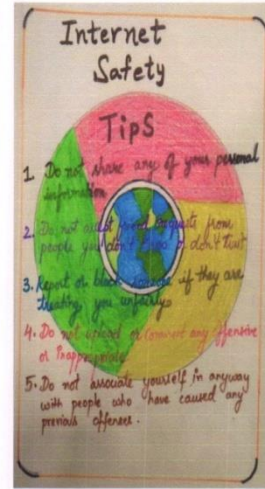 Internet
Safety
Tips
1. Do not share any of your personal
information
2. Do not accept friend requests from
people you don't know or don't trust
3. Report or block someone if they are
treating you unfairly
4. Do not upload or Comment any offensive
or Inappropriate
5. Do not associate yourself in anyway
with people who have caused any
previous offences.